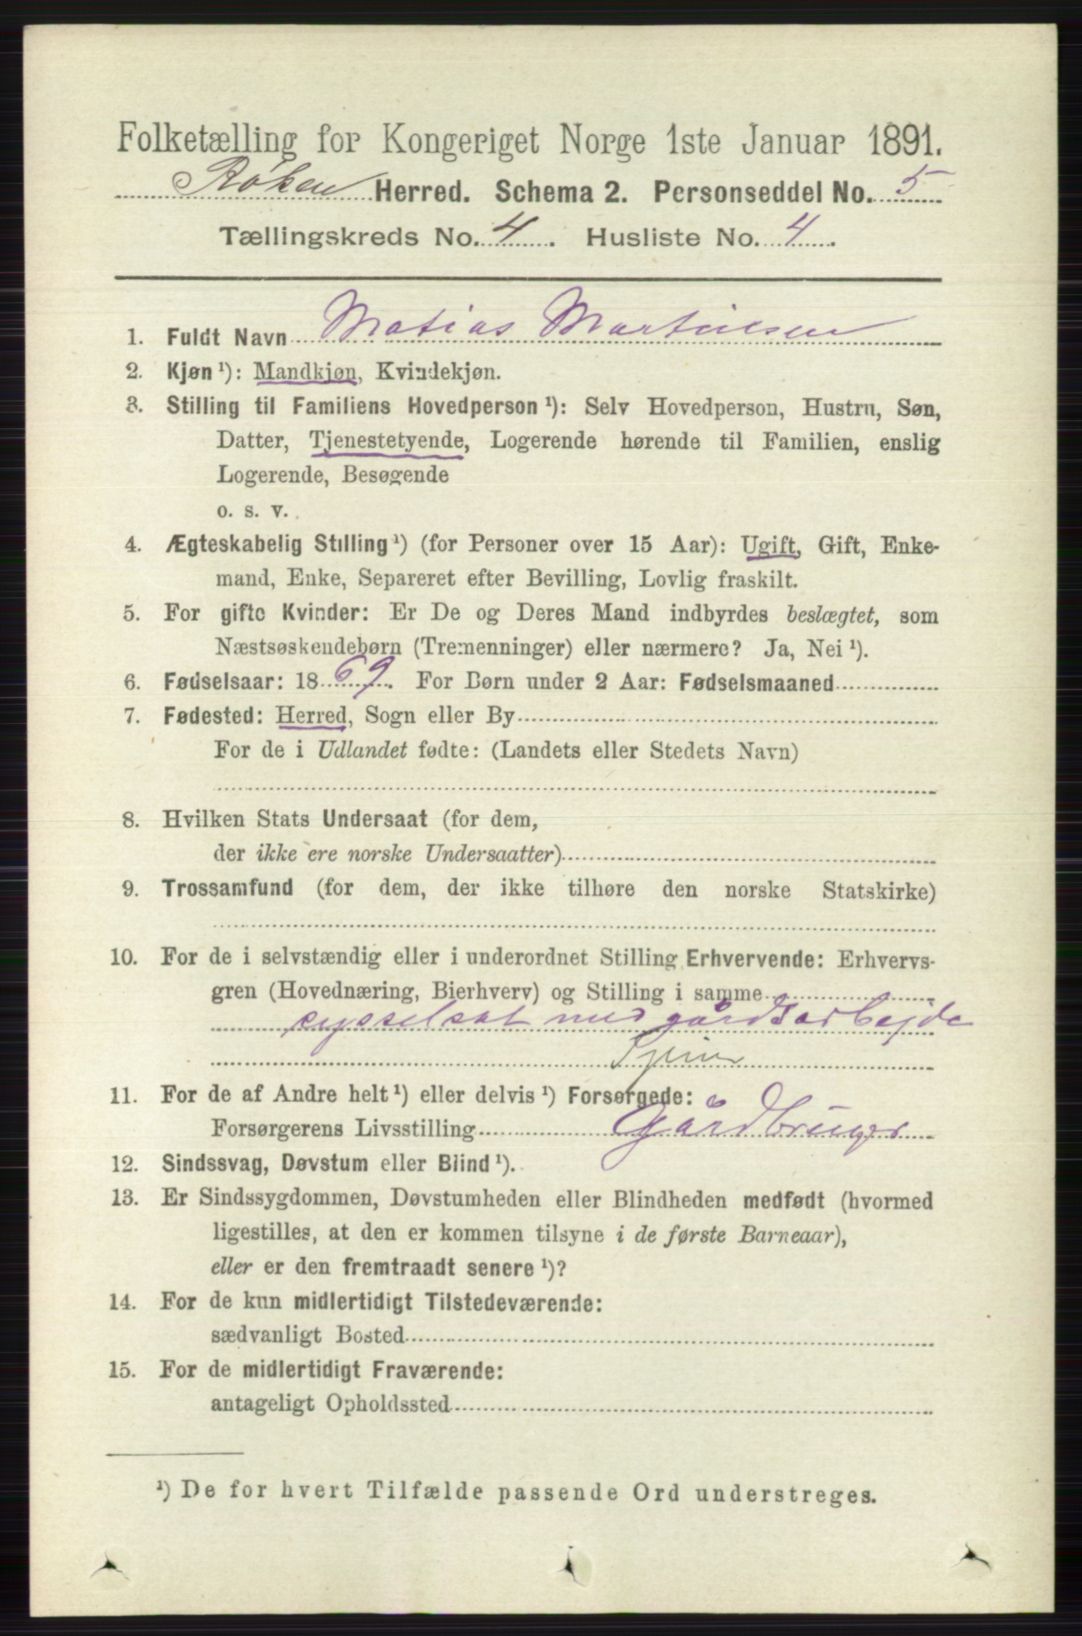 Folketælling for Kongeriget Norge 1ste Januar 1891.
Røken Herred. Schema 2. Personseddel No. 5
Tællingskreds No. 4. Husliste No. 4.
1. Fuldt Navn Matias Martinsen
2. Kjøn ¹): Mandkjøn, Kvindekjøn.
3. Stilling til Familiens Hovedperson ¹): Selv Hovedperson, Hustru, Søn,
Datter, Tjenestetyende, Logerende hørende til Familien, enslig
Logerende, Besøgende
o. s. v.
4. Ægteskabelig Stilling ¹) (for Personer over 15 Aar): Ugift, Gift, Enke-
mand, Enke, Separeret efter Bevilling, Lovlig fraskilt.
5. For gifte Kvinder: Er De og Deres Mand indbyrdes beslægtet, som
Næstsøskendebørn (Tremenninger) eller nærmere? Ja, Nei ¹).
6. Fødselsaar: 1869. For Børn under 2 Aar: Fødselsmaaned
7. Fødested: Herred, Sogn eller By
For de i Udlandet fødte: (Landets eller Stedets Navn)
8. Hvilken Stats Undersaat (for dem,
der ikke ere norske Undersaatter)
9. Trossamfund (for dem, der ikke tilhøre den norske Statskirke)
10. For de i selvstændig eller i underordnet Stilling Erhvervende: Erhvervs-
gren (Hovednæring, Bierhverv) og Stilling i samme
sysselsat med gårdsarbejde
11. For de af Andre helt ¹) eller delvis ¹) Forsørgede:
Forsørgerens Livsstilling Gårdbruger
12. Sindssvag, Døvstum eller Blind ¹).
13. Er Sindssygdommen, Døvstumheden eller Blindheden medfødt (hvormed
ligestilles, at den er kommen tilsyne i de første Barneaar),
eller er den fremtraadt senere ¹)?
14. For de kun midlertidigt Tilstedeværende:
sædvanligt Bosted
15. For de midlertidigt Fraværende:
antageligt Opholdssted
¹) De for hvert Tilfælde passende Ord understreges.